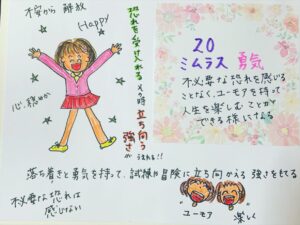 不安から 解放
Happy
心、穏やか
恐れを受け入れる
その時
立ち向う
強さが
うまれる!!
20
ミムラス 勇気
不必要な恐れを感じる
ことなく、ユーモアを持って
人生を楽しむことが
できる様になる
落ち着きと勇気を持って、試練や冒険に立ち向かえる強さをもてる
不必要な恐れは
感じない
ユーモア
楽しく